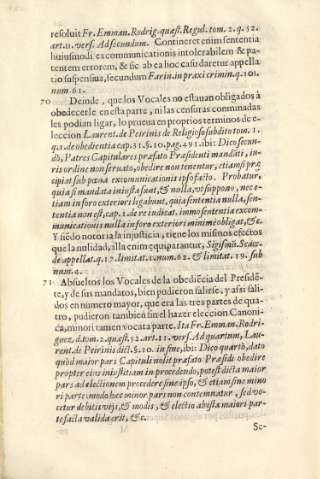 resoluit Fr. Emman. Rodrig. quæst. Regul. tom. 2. q. 52.
art. 11. vers. Ad secundum. Contineret enim sententia
huiusmodi excommunicationis intolerabilem & pa-
tentem errorem, & sic ab ea hoc casu daretur appella
tio suspensiua, secundum Farin. in praxi crimin. q. 101.
num. 61.
70 Deinde, que los Vocales no estauan obligados à
obedecerle en esta parte, ni las censuras conminadas
les podian ligar, lo prueua en proprios terminos de e-
leccion Laurent. de Peirinis de Religioso subdito tom. 1.
q. 1. de obedientia cap. 31. §. 10. pag. 491. ibi: Dico secun-
dò, Patres Capitulares præfato Præsidenti mandāti, iu-
ris ordine non seruato, obedire non tenentur, etiamsi præ
cipiat sub pœna excommunicationis ipso facto. Probatur,
quia si mandata iniusta sunt, & nulla, vt suppono, nec e-
tiam in foro exteriori ligabunt, quia sententia nulla, sen-
tentia non est, cap. 1. de re iudicat. immo sententia excom-
municationis nulla in foro exteriori minimè obligat, &c.
Y siēdo notoria la injusticia, tiene los mismos efectos
que la nulidad, illa enim equiparantur, Sigism. Scacc.
de appellat. q. 17. limitat. 1. num. 62. & limitat. 19. sub
num. 4.
71 Absueltos los Vocales de la obediēcia del Presidē-
te, y de sus mandatos, bien pudieron salirse, y assi sali-
dos en numero mayor, que era las tres partes de qua-
tro, pudieron tambiē sin el hazer eleccion Canoni-
ca, minori tamen vocata parte. Ita Fr. Emman. Rodri-
guez, d. tom. 2. quæst. 52. art. 11. vers. Ad quartum, Lau-
rent. de Peirinis dict. §. 10. in fine, ibi: Dico quartò, dato
quòd maior pars Capituli nolit præfato Præsidi obedire
propter eius iniustitiam in procedendo, potest dicta maior
pars ad electionem procedere sine ipso, & etiam sine mino
ri parte: modo hæc minor pars non contemnatur, sed vo-
cetur debitis vijs, & modis, & electio ab ista maiori par-
te facta valida erit, &c.
Se-